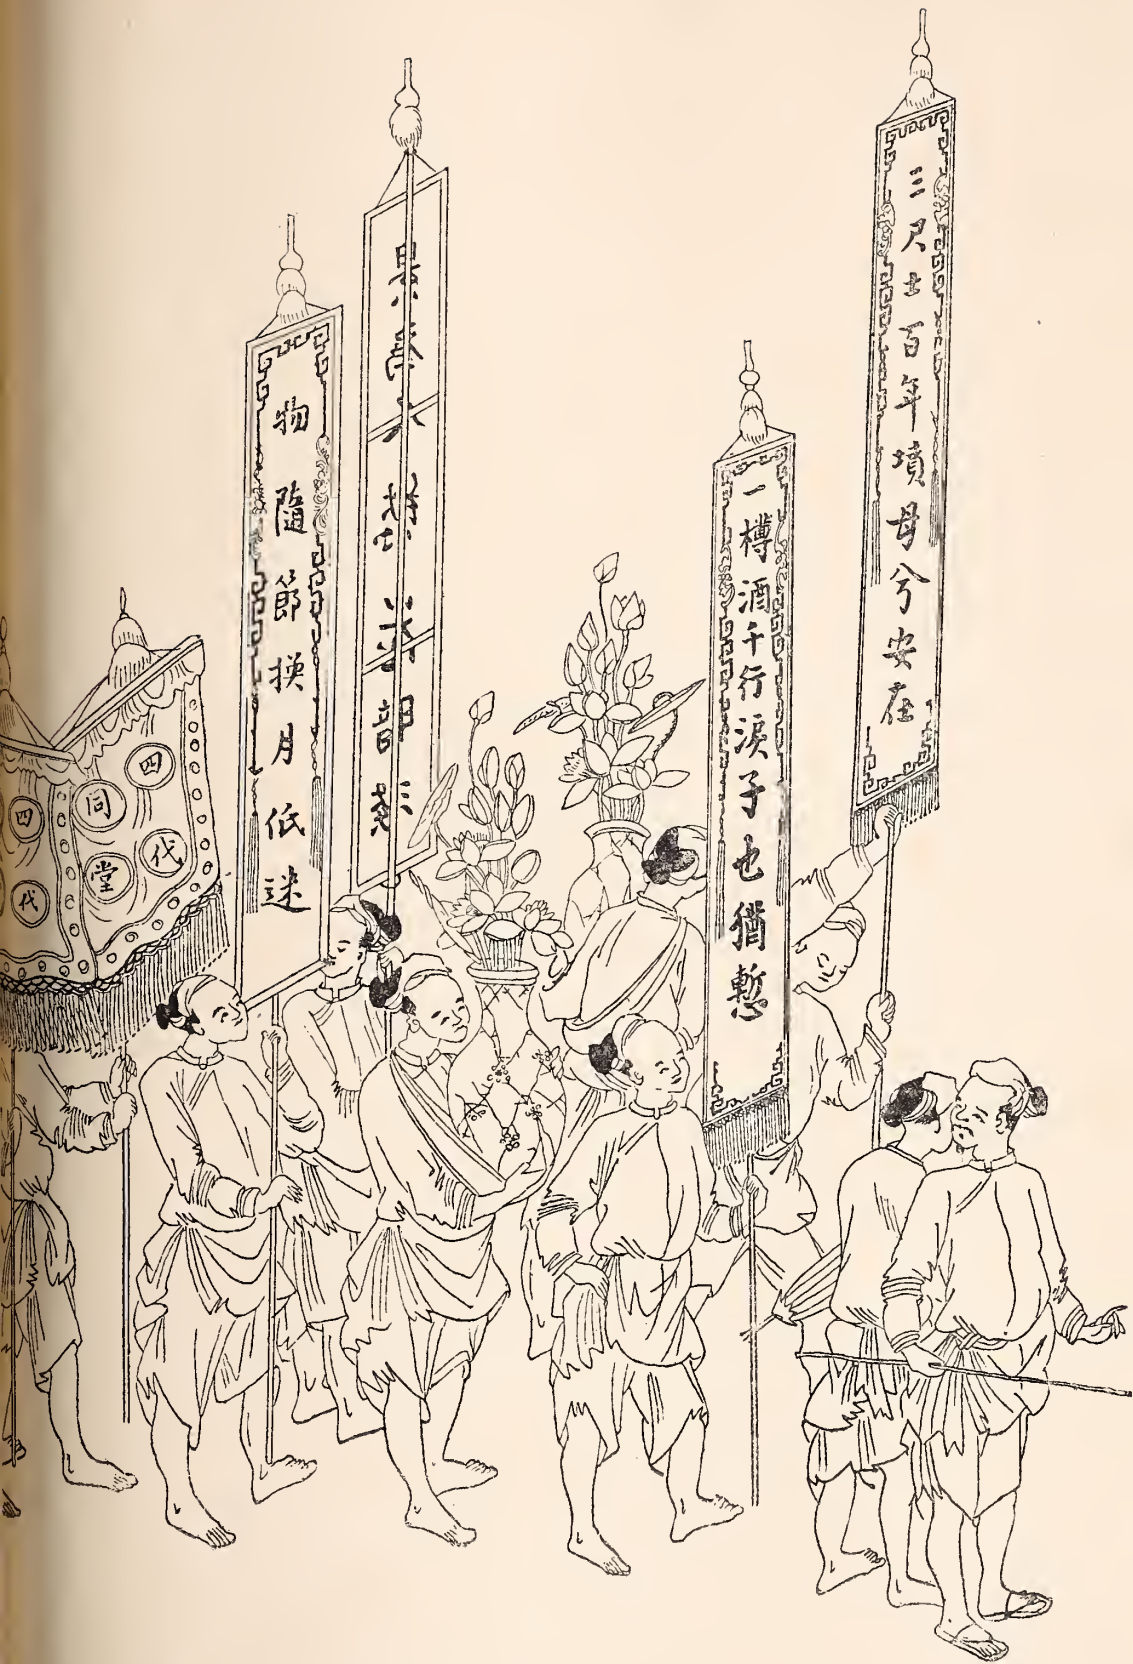 三尺土百年墳母兮安在
一樽酒千行淚子也猶慙
物隨節換月低迷
四代
同堂
四代